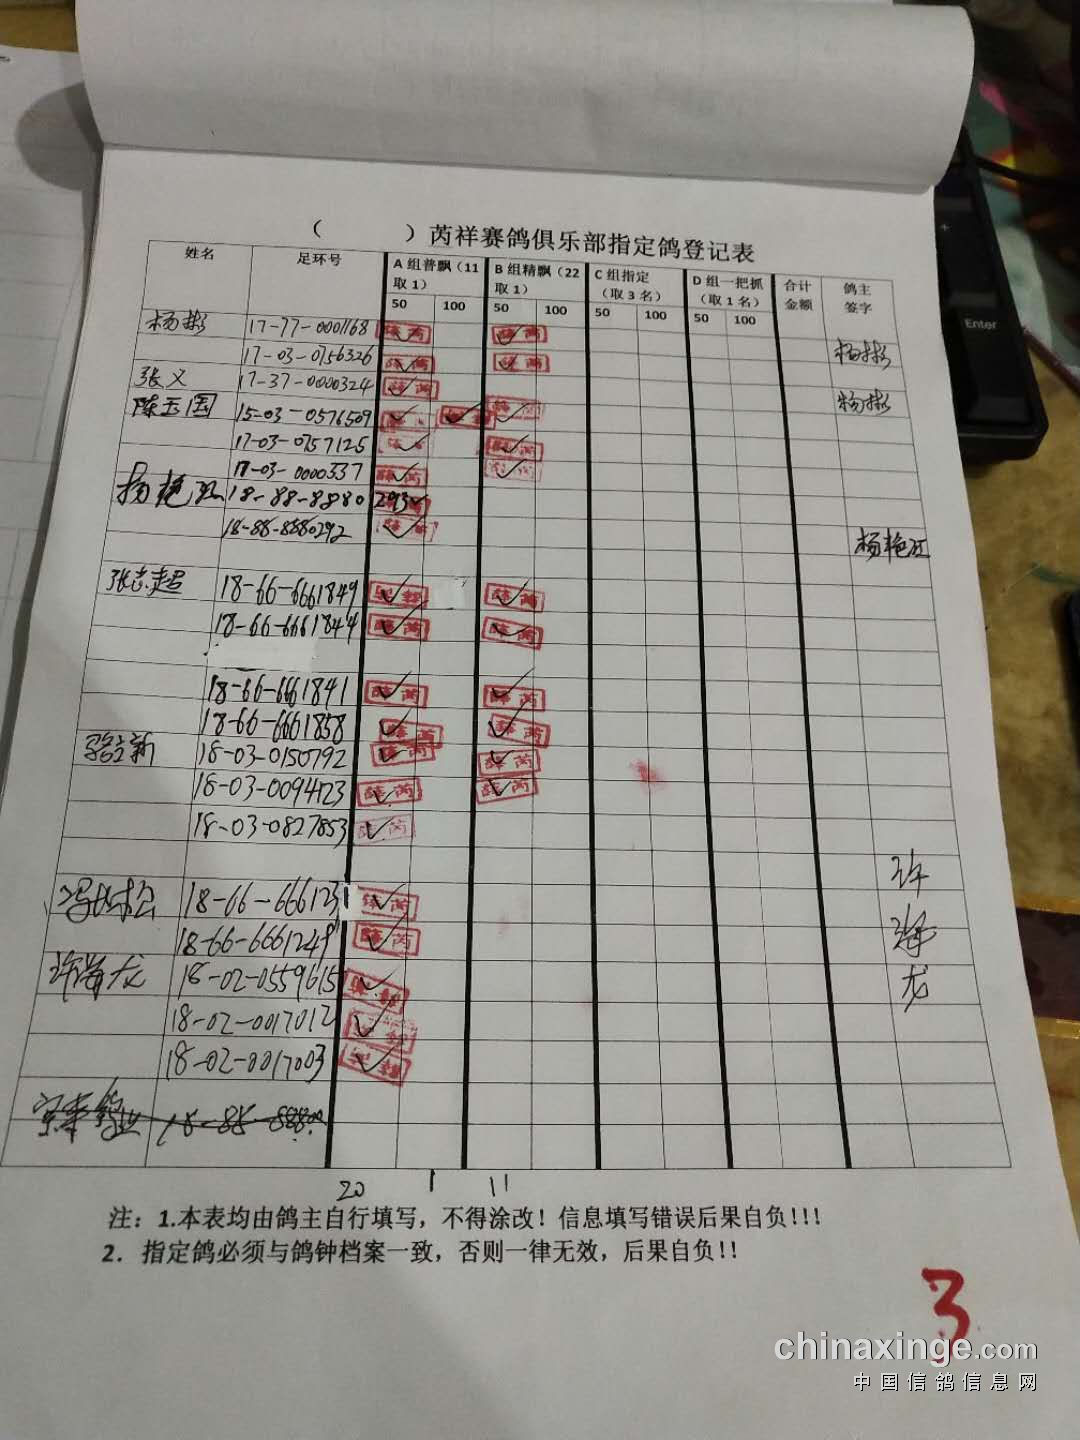 （ ）芮祥赛鸽俱乐部指定鸽登记表
姓名 足环号 A组普飘（11取1） B组精飘（22取1） C组指定（取3名） D组一把抓（取1名） 合计金额 鸽主签字
50 100 50 100 50 100 50 100
杨彬 17-77-0001168
17-03-0756326 杨彬
张义 17-37-0000324
陈玉国 15-03-0576509 杨彬
17-03-0757125
17-03-0000337
杨艳江 18-88-8880293
18-88-8880292 杨艳江
张志超 18-66-6661849
18-66-6661844
18-66-6661841
18-66-6661858
骆立新 18-03-0150792
18-03-0094123
18-03-0827853
18-66-666123 许
18-66-6661249
龙 18-02-0559615 龙
18-02-0017012
18-02-0017003
18-85-888
20 1 11
注：1.本表均由鸽主自行填写，不得涂改！信息填写错误后果自负!!!
2. 指定鸽必须与鸽钟档案一致，否则一律无效，后果自负!!
3
chinaxinge.com
中国信鸽信息网
Enter